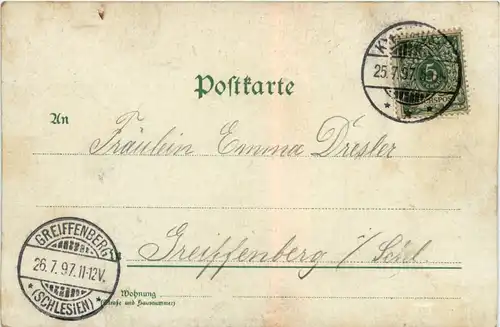 Postkarte
25.7.97.
5
An
Fräulein Emma Dresler
GREIFFENBERG
26.7.97.11-12V.
(SCHLESIEN)
in
Greiffenberg i/Schl
Wohnung
(Straße und Hausnummer)